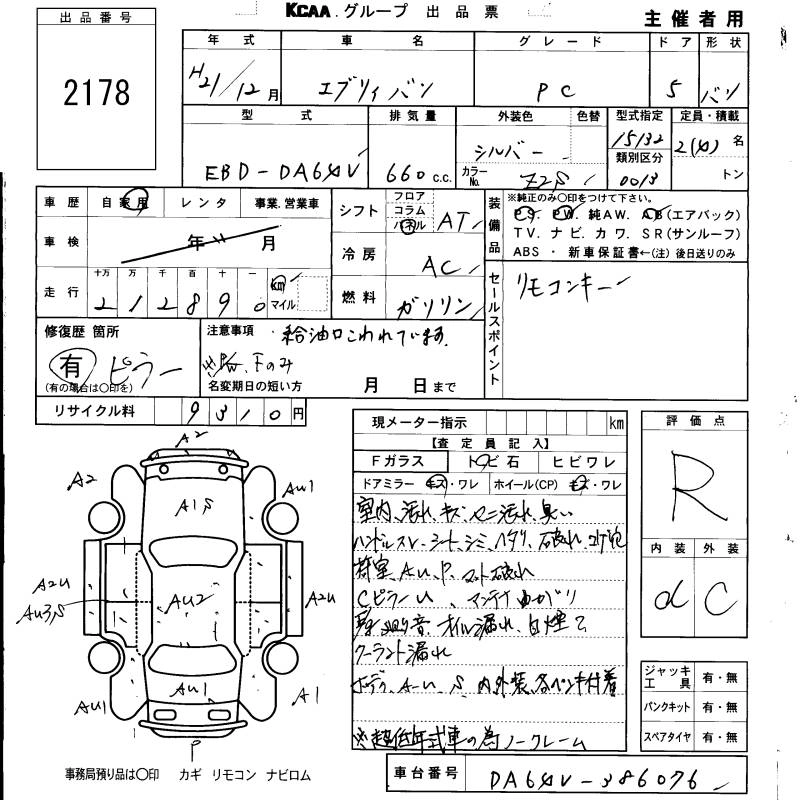 KCAA. グループ 出品票
主催者用
出品番号
2178
年式 車名 グレード ドア 形状
H21/12月 エブリィバン PC 5 バン
型式 排気量 外装色 色替 型式指定 定員・積載
EBD-DA64V 660 c.c. シルバー 15132 2(4)名
カラーNo. Z2S 類別区分 0013 トン
車歴 自家用 レンタ 事業.営業車
シフト フロア コラム パネル AT
装備品 ※純正のみ○印をつけて下さい。
PS. PW. 純AW. AB(エアバック)
TV. ナビ. カワ. SR(サンルーフ)
ABS ・ 新車保証書←(注) 後日送りのみ
車検 年 月
冷房 AC
走行 十万 万 千 百 十 一
212890 km マイル
燃料 ガソリン
セールスポイント リモコンキー
修復歴 箇所
有 ピラー
(有の場合は○印を)
注意事項・給油口こわれています。
Fのみ
名変期日の短い方 月 日まで
リサイクル料 9310円
現メーター指示 km
【査定員記入】
Fガラス トビ石 ヒビワレ
ドアミラー キズ・ワレ ホイール(CP) キズ・ワレ
室内、汚れ、キズ、 汚れ、臭い
ハンドルスレ、シート、シミ、ヘタリ、 破れ、コゲ穴
荷室、AU、P、マット破れ
CピラーU、
音、オイル漏れ、白煙
クーラント漏れ
ボディ、A-U、S、内外装、各ペンキ付着
※超低年式車の為ノークレーム
評価点
R
内装 外装
d C
ジャッキ工具 有・無
パンクキット 有・無
スペアタイヤ 有・無
A2
A2 AW1
A1S
A2U AU2 A2U
AU3,S
AU1 AU1 A1
P
事務局預り品は○印 カギ リモコン ナビロム
車台番号 DA64V-386076